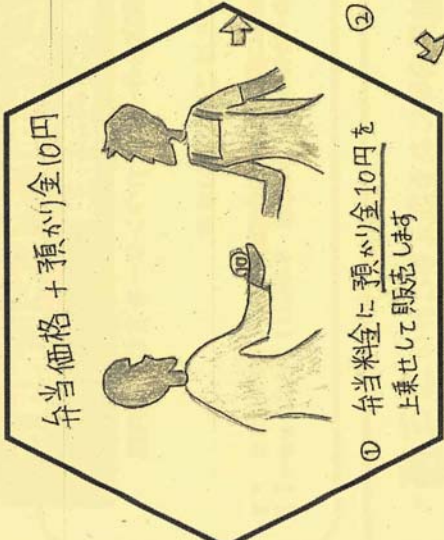 弁当価格 + 預かり金10円
10
① 弁当料金に預かり金10円を
上乗せして販売します
②